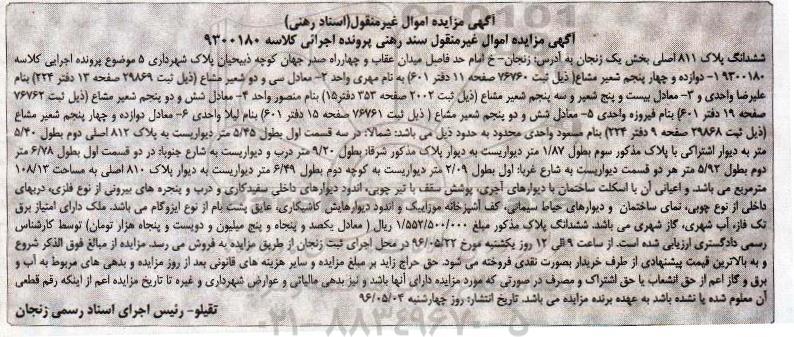 آگهی مزایده اموال غیرمنقول(اسناد رهنی)
آگهی مزایده اموال غیرمنقول سند رهنی پرونده اجرائی کلاسه ۹۳۰۰۱۸۰
ششدانگ پلاک ۸۱۱ اصلی بخش یک زنجان به آدرس: زنجان- خ امام حد فاصل میدان عقاب و چهارراه صدر جهان کوچه ذبیحیان پلاک شهرداری ۵ موضوع پرونده اجرایی کلاسه
۹۳۰۰۱۸۰ ۱- دوازده و چهار پنجم شعیر مشاع( ذیل ثبت ۷۶۷۶۰ صفحه ۱۱ دفتر ۶۰۱) به نام مهری واحد ۲- معادل سی و دو شعیر مشاع (ذیل ثبت ۲۹۸۶۹ صفحه ۱۳ دفتر ۲۲۴) بنام
علیرضا واحدی و ۳- معادل بیست و پنج شعیر و سه پنجم شعیر مشاع (ذیل ثبت ۲۰۰۲ صفحه ۳۵۳ دفتر۱۵) بنام منصور واحد ۴- معادل شش و دو پنجم شعیر مشاع (ذیل ثبت ۷۶۷۶۲
صفحه ۱۹ دفتر ۶۰۱) بنام فیروزه واحدی ۵- معادل شش و دو پنجم شعیر مشاع ( ذیل ثبت ۷۶۷۶۱ صفحه ۱۵ دفتر ۶۰۱) بنام لیلا واحدی ۶- معادل دوازده و چهار پنجم شعیر مشاع
(ذیل ثبت ۲۹۸۶۸ صفحه ۹ دفتر ۲۲۴) بنام مسعود واحدی محدود به حدود ذیل می باشد: شمالا: در سه قسمت اول بطول ۵/۴۵ متر دیواریست به پلاک ۸۱۲ اصلی دوم بطول ۵/۴۰
متر به دیوار اشتراکی با پلاک مذکور سوم بطول ۱/۸۷ متر دیواریست به دیوار پلاک مذکور شرقا: بطول ۹/۲۰ متر درب و دیواریست به شارع جنوبا: در دو قسمت اول بطول ۶/۷۸ متر
دوم بطول ۵/۹۲ متر هر دو قسمت دیواریست به شارع غربا: اول بطول ۲/۰۹ متر دیواریست به کوچه دوم بطول ۶/۴۹ متر دیواریست به دیوار پلاک ۸۱۰ اصلی به مساحت ۱۰۸/۱۳
مترمربع می باشد و اعیانی آن با اسکلت ساختمان با دیوارهای آجری، پوشش سقف با تیر چوبی، اندود دیوارهای داخلی سفیدکاری و درب و پنجره های بیرونی از نوع فلزی، دربهای
داخلی از نوع چوبی، نمای ساختمان و دیوارهای حیاط سیمانی، کف آشپزخانه موزاییک و اندود دیوارهایش کاشیکاری، عایق پشت بام از نوع ایزوگام می باشد. ملک دارای امتیاز برق
تک فاز، آب شهری، گاز شهری می باشد. ششدانگ پلاک مذکور مبلغ ۱/۵۵۲/۵۰۰/۰۰۰ ریال ( معادل یکصد و پنجاه و پنج میلیون و دویست و پنجاه هزار تومان) توسط کارشناس
رسمی دادگستری ارزیابی شده است. از ساعت ۹ الی ۱۲ روز یکشنبه مورخ ۹۶/۰۵/۲۲ در محل اجرای ثبت زنجان از طریق مزایده به فروش می رسد. مزایده از مبالغ فوق الذکر شروع
و به بالاترین قیمت پیشنهادی از طرف خریدار بصورت نقدی فروخته می شود. حق حراج زاید بر مبلغ مزایده و سایر هزینه های قانونی بعد از روز مزایده و بدهی های مربوط به آب و
برق و گاز اعم از حق انشعاب یا حق اشتراک و مصرف در صورتی که مورد مزایده دارای آنها باشد و نیز بدهی مالیاتی و عوارض شهرداری و غیره تا تاریخ مزایده اعم از اینکه رقم قطعی
آن معلوم شده یا نشده باشد به عهده برنده مزایده می باشد. تاریخ انتشار: روز چهارشنبه ۹۶/۰۵/۰۴
تقیلو- رئیس اجرای اسناد رسمی زنجان
۰۲۱-۸۸۳۴۹۶۷۰-۵